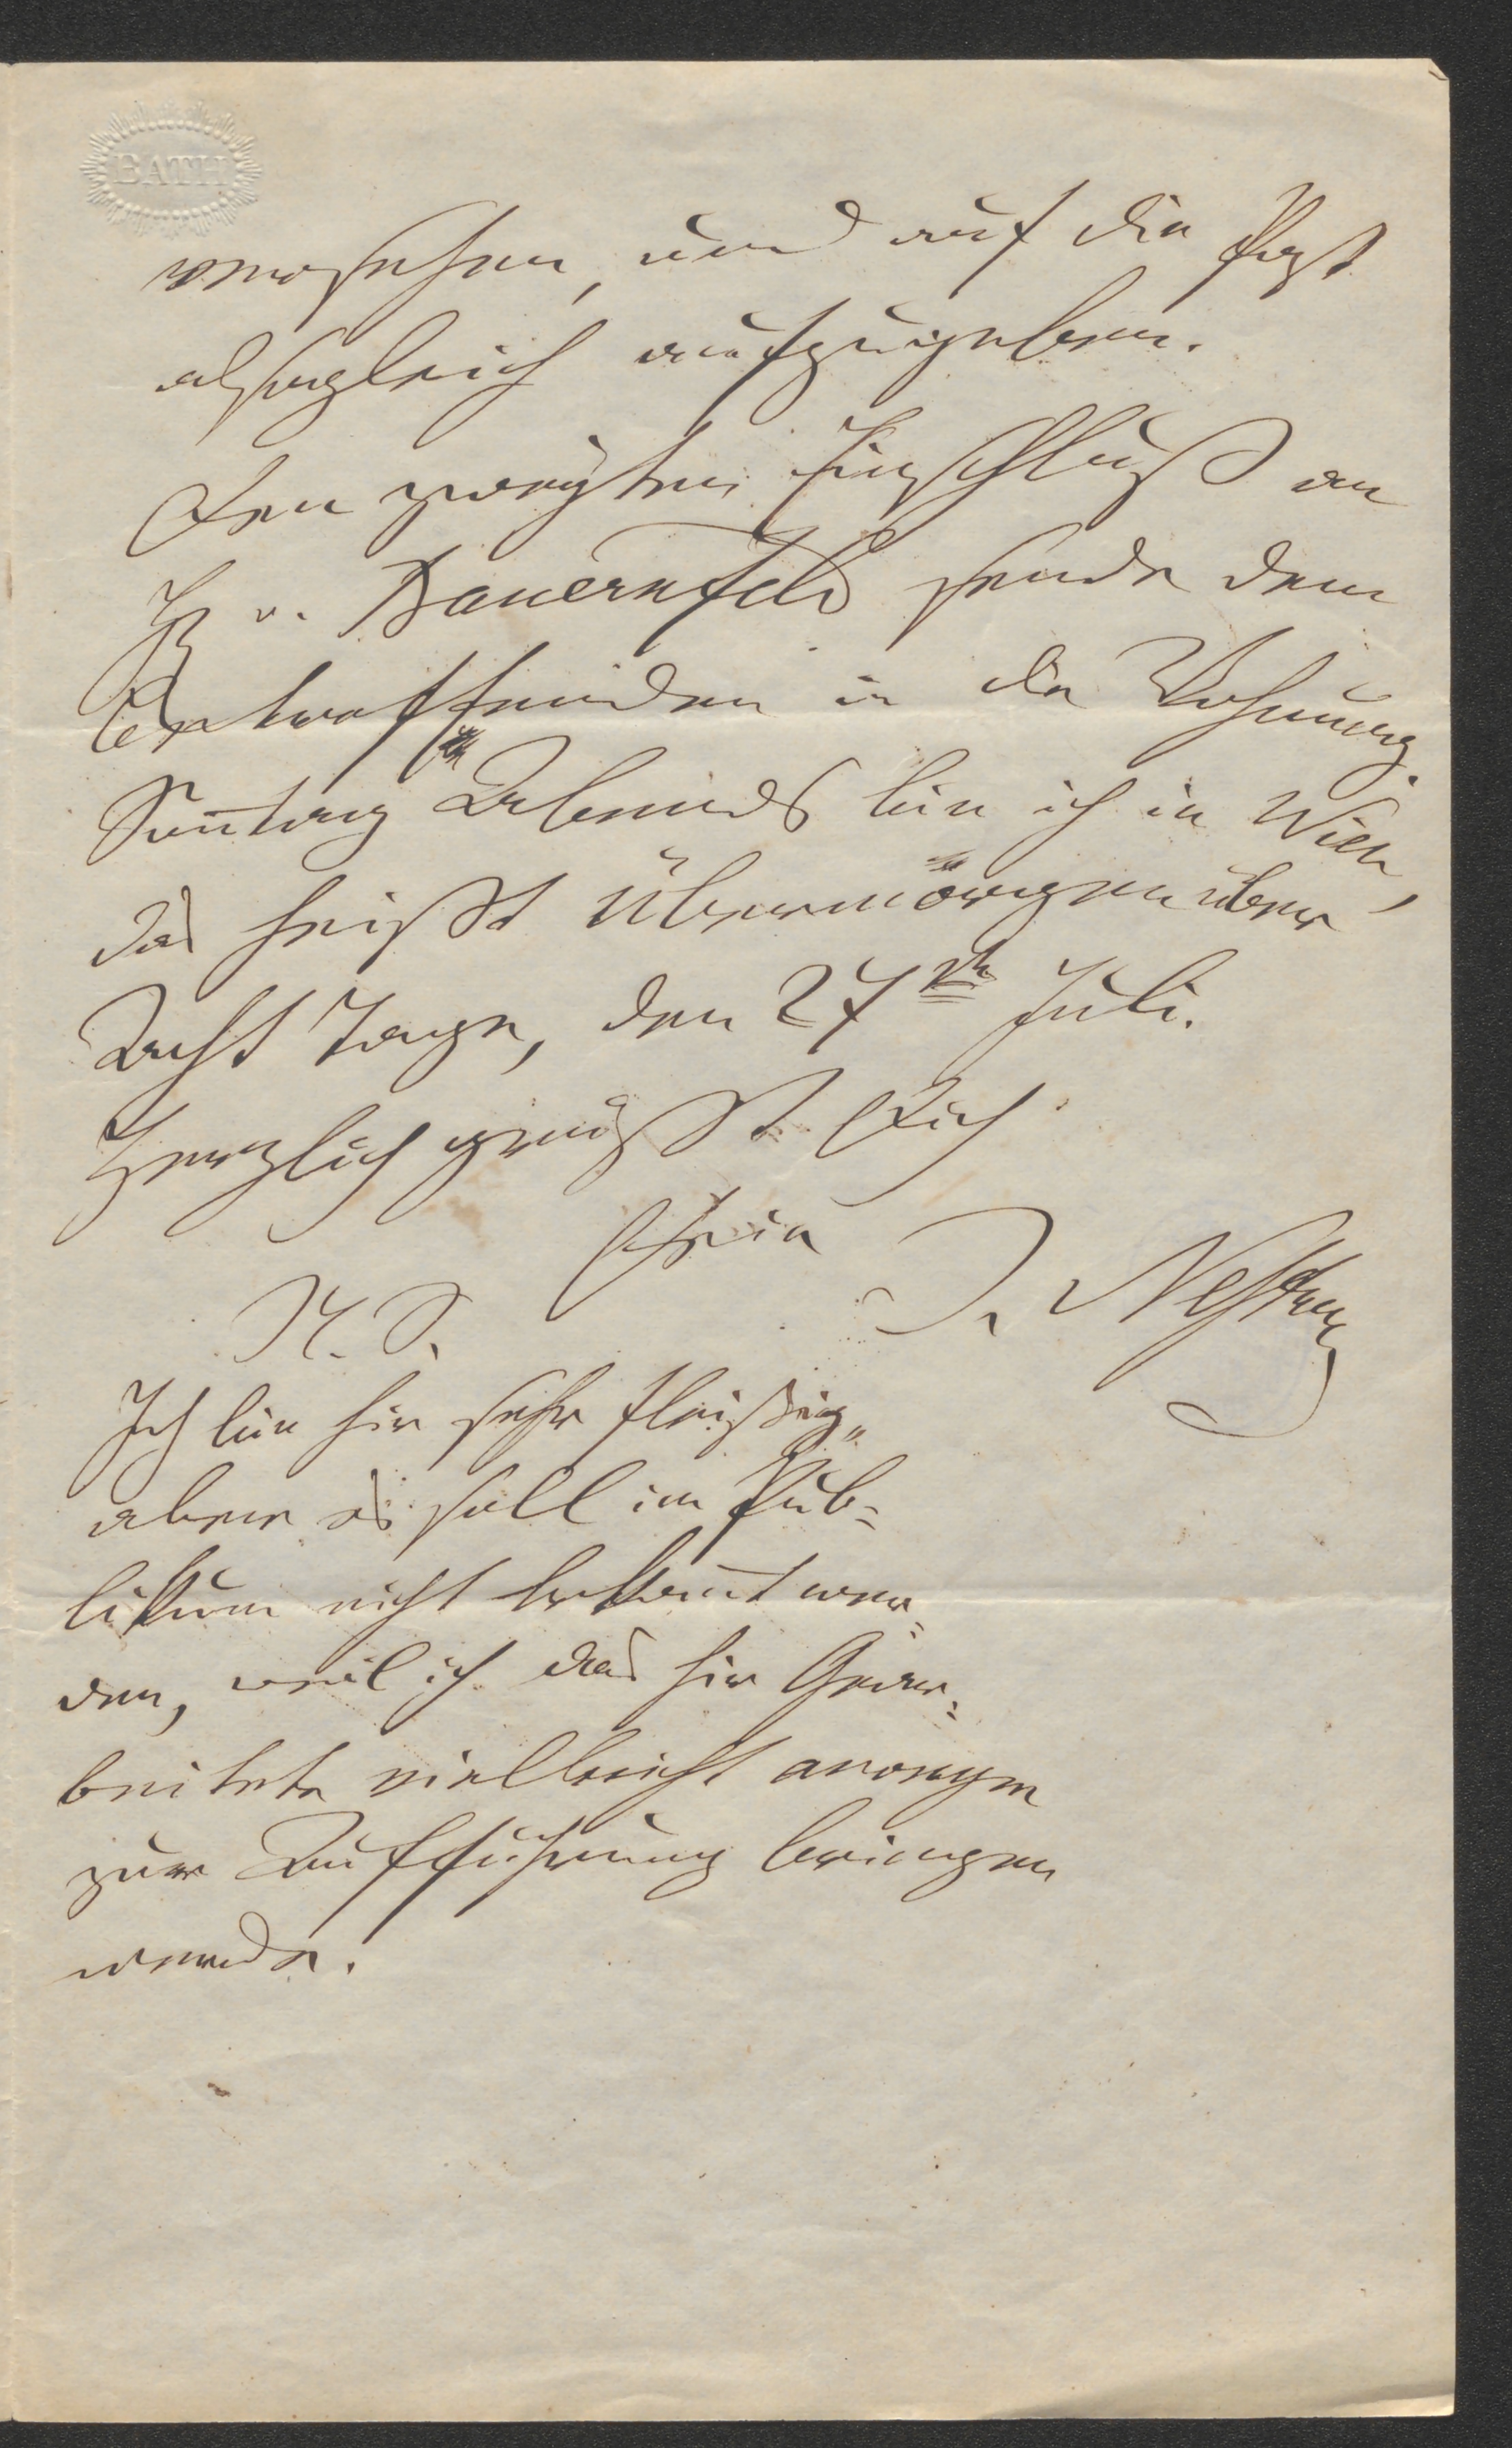 BATH
versehen, und auf die Post
alsogleich aufzugeben.
Den zweyten Einschluß an
H v. Bauernfeld sende dem
Betreffenden in die Wohnung.
Sonntag Abends bin ich in Wien,
das heißt übermorgen über
Acht Tage, den 27ten July.
Herzlich grüßt Dich
Dein J. Nestroy
N. S.
Ich bin hir sehr fleißig,
aber es soll im Pub=
likum nicht bekannt wer=
den, weil ich das hir Gear=
beitete vielleicht anonym
zur Aufführung bringen
werde.